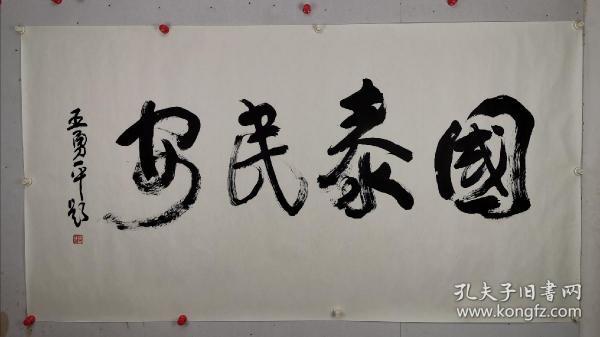 國泰民安
王勇平題
孔夫子旧書网
www.kongfz.com